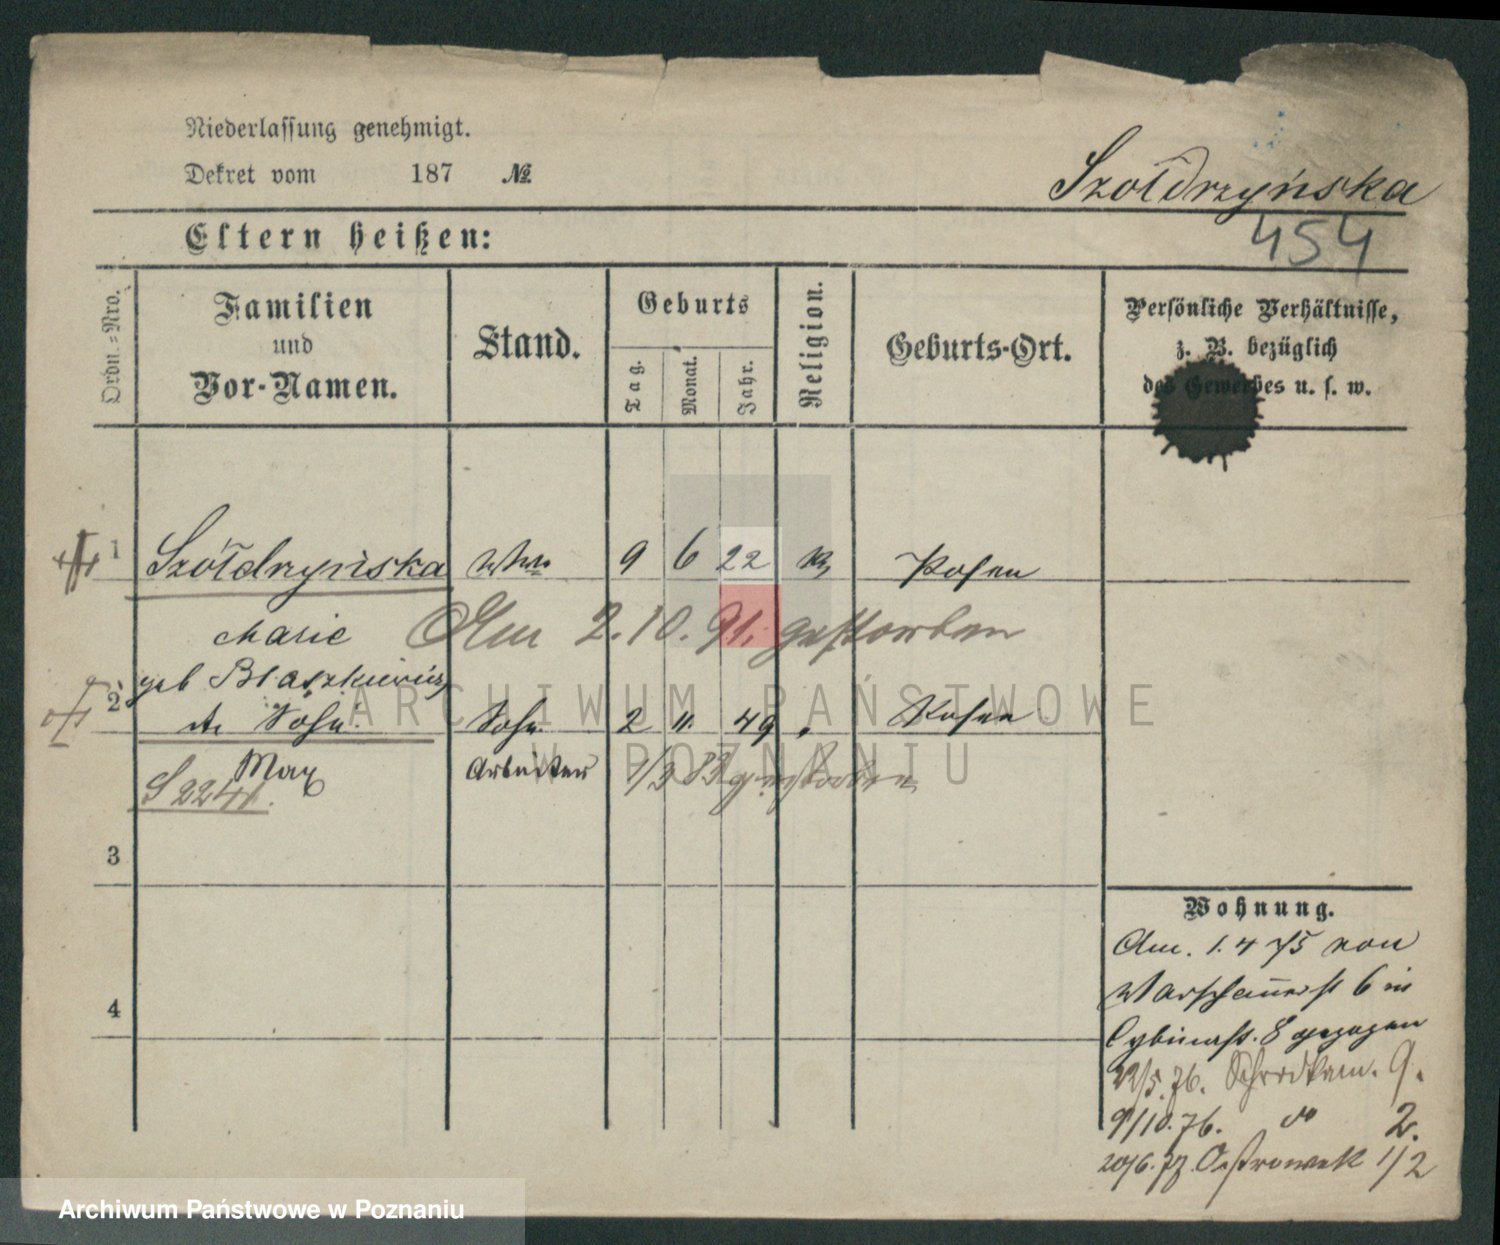 Niederlassung genehmigt.
Dekret vom 187 №
Szołdrzyńska
454
Eltern heißen:
Ordn.=Nro.
Familien
und
Vor-Namen.
Stand.
Geburts
Tag.
Monat.
Jahr.
Religion.
Geburts-Ort.
Persönliche Verhältnisse,
z. B. bezüglich
des Gewerbes u. s. w.
1 Szołdrzyńska Wwe 9 6 22 K, Posen
Marie Am 2.10.91. gestorben
geb Błaszkiewicz
2 Sohn Sohn 2 11. 49 Posen
Max Arbeiter 1/3 83 gestorben
S 2241.
3
4
Wohnung.
Am. 1. 4 75 von
Warschauerst 6 in
Cybinast. 8 gezogen
22/5. 76. Schrodkam. 9.
9/10. 76. do 2.
20/6. 77. Ostrowek 1/2
ARCHIWUM PAŃSTWOWE
W POZNANIU
Archiwum Państwowe w Poznaniu